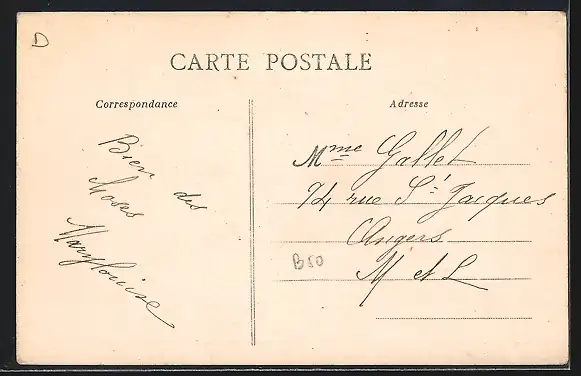 D
CARTE POSTALE
Correspondance
Bien des
choses
Marylouise
Adresse
Mme Gallet
94 rue St Jacques
Angers
B50
M et L